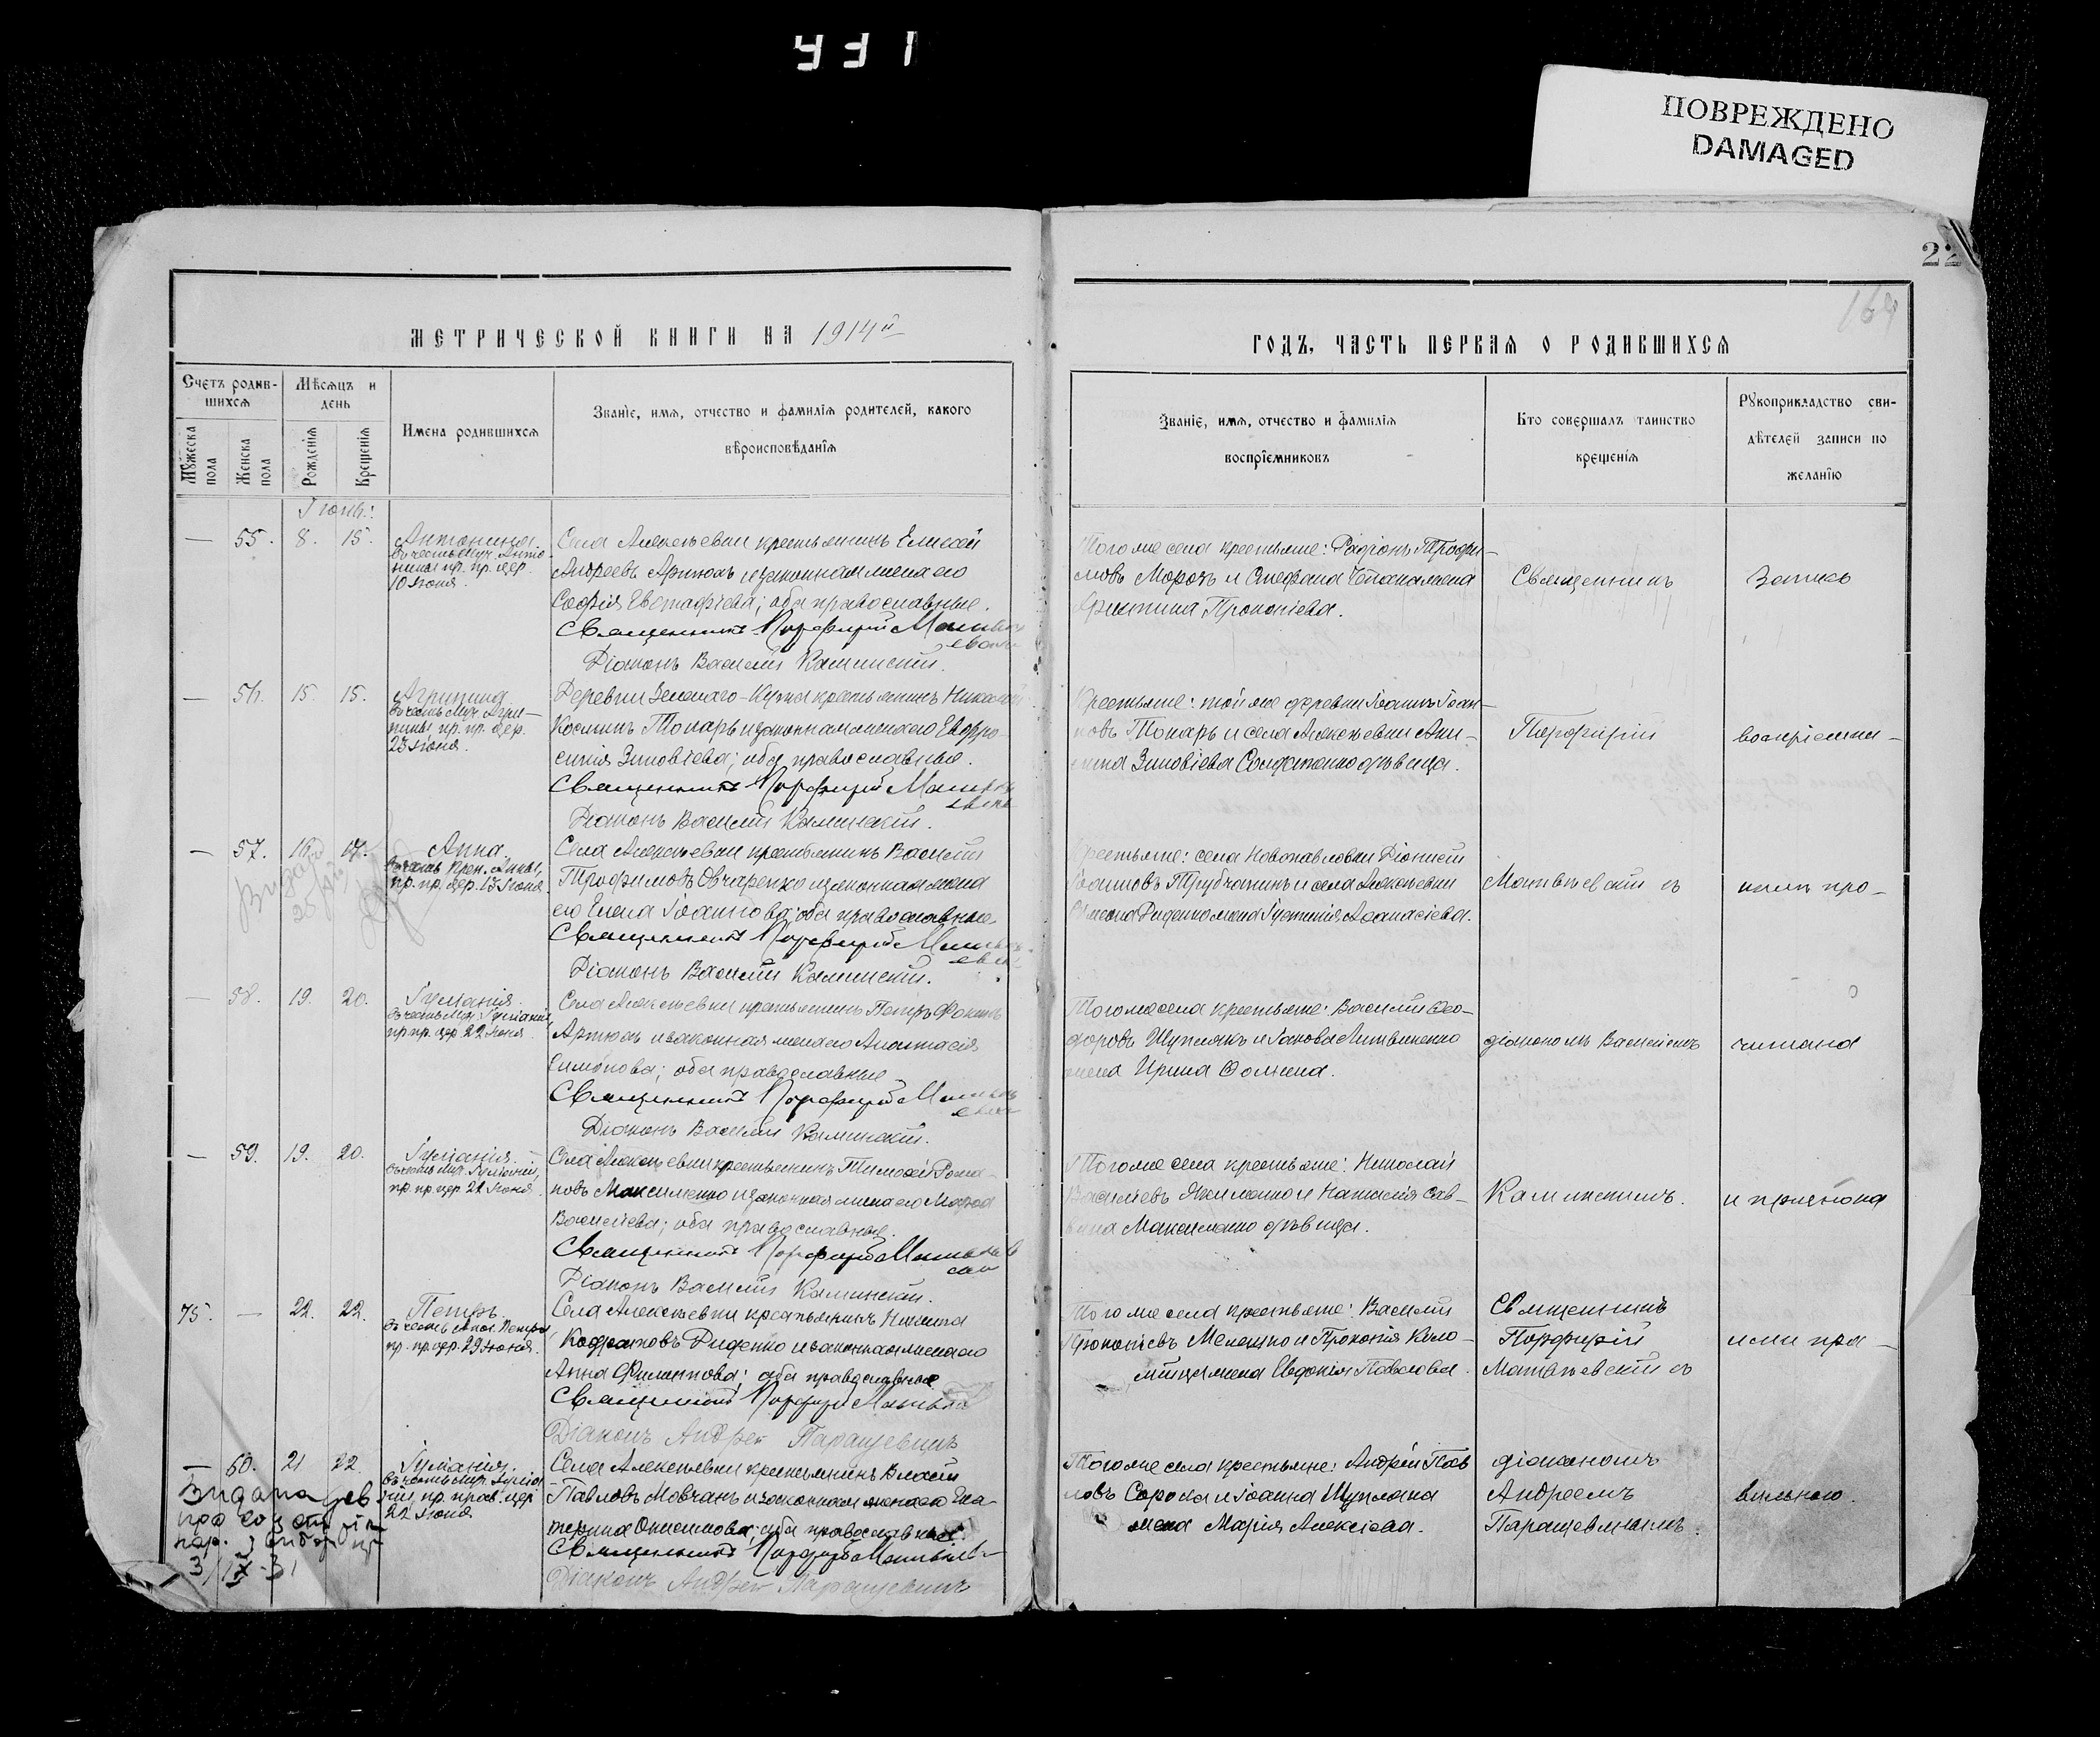 ПОВРЕЖДЕНО
DAMAGED
22
164
МЕТРИЧЕСКОЙ КНИГИ НА 1914й
ГОДЪ, ЧАСТЬ ПЕРВАЯ О РОДИВШИХСЯ
Счетъ родив-
шихся
Мѣсяцъ и
день
Мȣжеска
пола
Женска
пола
Рожденія
Крещенія
Имена родившихся
Званіе, имя, отчество и фамилія родителей, какого
вѣроисповѣданія
Званіе, имя, отчество и фамилія
воспріемниковъ
Кто совершалъ таинство
крещенія
Рȣкоприкладство сви-
дѣтелей записи по
желанію
Іюнь:
— 55. 8. 15.
Антонина
въ честь Муч. Анто-
нины пр. пр. цер.
10 Іюня.
Села Алексѣевки крестьянинъ Елисей
Андреевъ Артюхъ и законная жена его
Софія Евстафіева; оба православные.
Священникъ Порфирій
Діаконъ Василій Каминскій.
Того же села крестьяне: Родіонъ Трофи-
мовъ Морозъ и Стефана жена
Христина Прокопіева.
Священникъ
Запись
— 56. 15. 15.
Агрипина
въ честь Муч. Агри-
пины пр. пр. цер.
23 Іюня.
Деревни Зеленаго-Кута крестьянинъ Николай
Косминъ Токарь и законная жена его Евфро-
синія Зиновіева; оба православные.
Священникъ Порфирій
Діаконъ Василій Каминскій.
Крестьяне: той же деревни Іоаннъ Іоан-
новъ Токарь и села Алексѣевки
Зиновіева дѣвица.
Порфирій
воспріемни-
— 57. 16. 17.
Анна
въ честь Преп. Анны,
пр. пр. цер. 13 Іюня.
Села Алексѣевки крестьянинъ Василій
Трофимовъ Овчаренко и законная жена
его Елена Іоаннова; оба православные
Священникъ Порфирій
Діаконъ Василій Каминскій.
Крестьяне: села Новопавловки Діонисій
Іоанновъ Трубчанинъ и села Алексѣевки
Симеона Диденко жена Іустинія Аѳанасіева.
Матвѣевскій съ
камъ про-
— 58. 19. 20.
Іуліанія.
въ честь Муч. Іуліаніи,
пр. пр. цер. 22 Іюня.
Села Алексѣевки крестьянинъ Петръ Фокинъ
Артюхъ и законная жена его Анастасія
Симонова; оба православные
Священникъ Порфирій
Діаконъ Василій Каминскій.
Того же села крестьяне: Василій Ѳео-
доровъ Шуплякъ и Іакова Литвиненко
жена Ирина Ѳомина.
діакономъ Василіемъ
читана
— 59. 19. 20.
Іуліанія.
въ честь Муч. Іуліаніи,
пр. пр. цер. 22 Іюня.
Села Алексѣевки крестьянинъ Тимоѳей Рома-
новъ Максименко и законная жена его Марѳа
Василіева; оба православные.
Священникъ Порфирій
Діаконъ Василій Каминскій.
Того же села крестьяне: Николай
Василіевъ Якименко и Наталія Сав-
вина Максименко дѣвица.
Каминскимъ.
и признана
75. — 22. 22.
Петръ
въ честь Апос. Петра
пр. пр. цер. 29 Іюня.
Села Алексѣевки крестьянинъ Никита
Кодратовъ Диденко и законная жена его
Анна Филиппова; оба православные
Священникъ Порфирій
Діаконъ Андрей Паращевинъ
Того же села крестьяне: Василій
Прокопіевъ Мелешко и Прокопія Коло-
мійца жена Евдокія Павлова.
Священникъ
Порфирій
Матвѣевскій съ
ими пра-
— 60. 21 22.
Іуліанія.
въ честь Муч. Іуліа-
ніи, пр. прав. цер.
22 Іюня
Села Алексѣевки крестьянинъ Власій
Павловъ Мовчанъ и законная жена его Ека-
терина Онисимова; оба православные.
Священникъ Порфирій
Діаконъ Андрей Паращевинъ
Того же села крестьяне: Андрей Пав-
ловъ Сорока и Іоанна Шупляка
жена Марія Алексіева.
діакономъ
Андреемъ
Паращевинымъ.
вильною.
Видана
про
3/IX-31